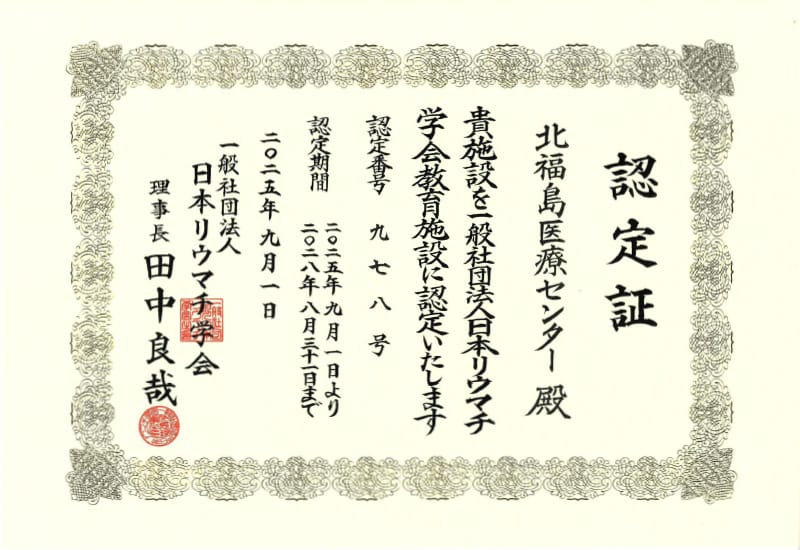 認定証
北福島医療センター 殿
貴施設を一般社団法人日本リウマチ
学会教育施設に認定いたします
認定番号 九七八号
認定期間 二〇二五年九月一日より
二〇二八年八月三十一日まで
二〇二五年九月一日
一般社団法人
日本リウマチ学会
理事長 田中良哉